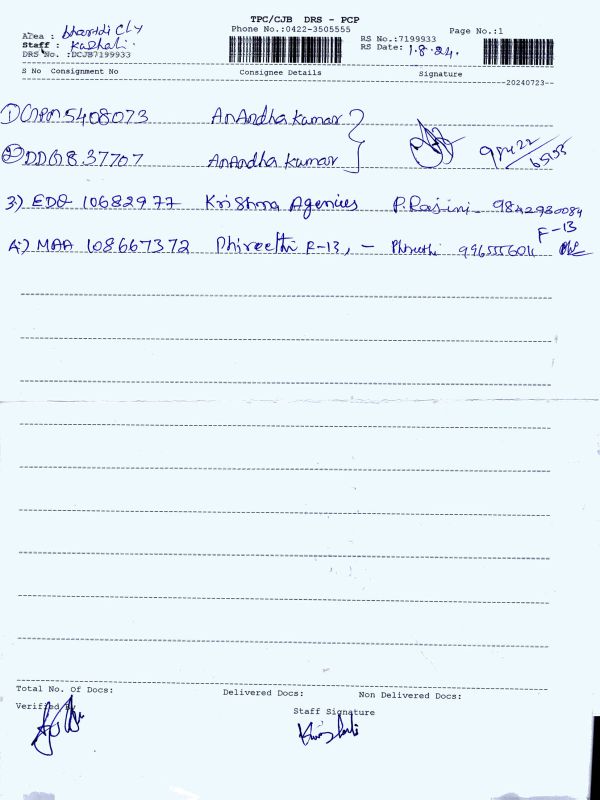 TPC/CJB DRS - PCP
Phone No.:0422-3505555
Page No.:1
Area : bharathi Cly
Staff : Kashali.
DRS No. :DCJB7199933
RS No.:7199933
RS Date: 1.8.24.
S No Consignment No Consignee Details Signature
20240723
1) 5408073 AnAndha kumar
2) 837707 AnAndha kumar
98422
65153
3) EDQ 10682977 Krishna Agencies P.Rajini - 9842930084
4) MAA 108667372 Phireethi F-13, - Phireethi 9965556011 F-13
Total No. Of Docs: Delivered Docs: Non Delivered Docs:
Verified By
Staff Signature